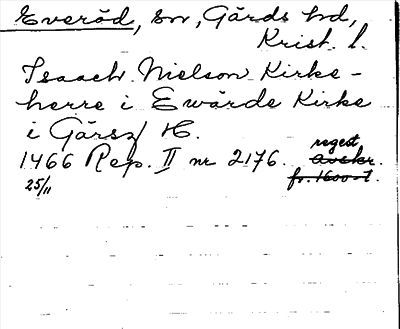 Everöd, sn, Gärds hd,
Krist. l.
Isaach Nielson Kirke-
herre i Ewärde Kirke
i Gärsz H.
1466 Rep. II nr 2176. regest
avskr.
25/11 fr. 1600-t.